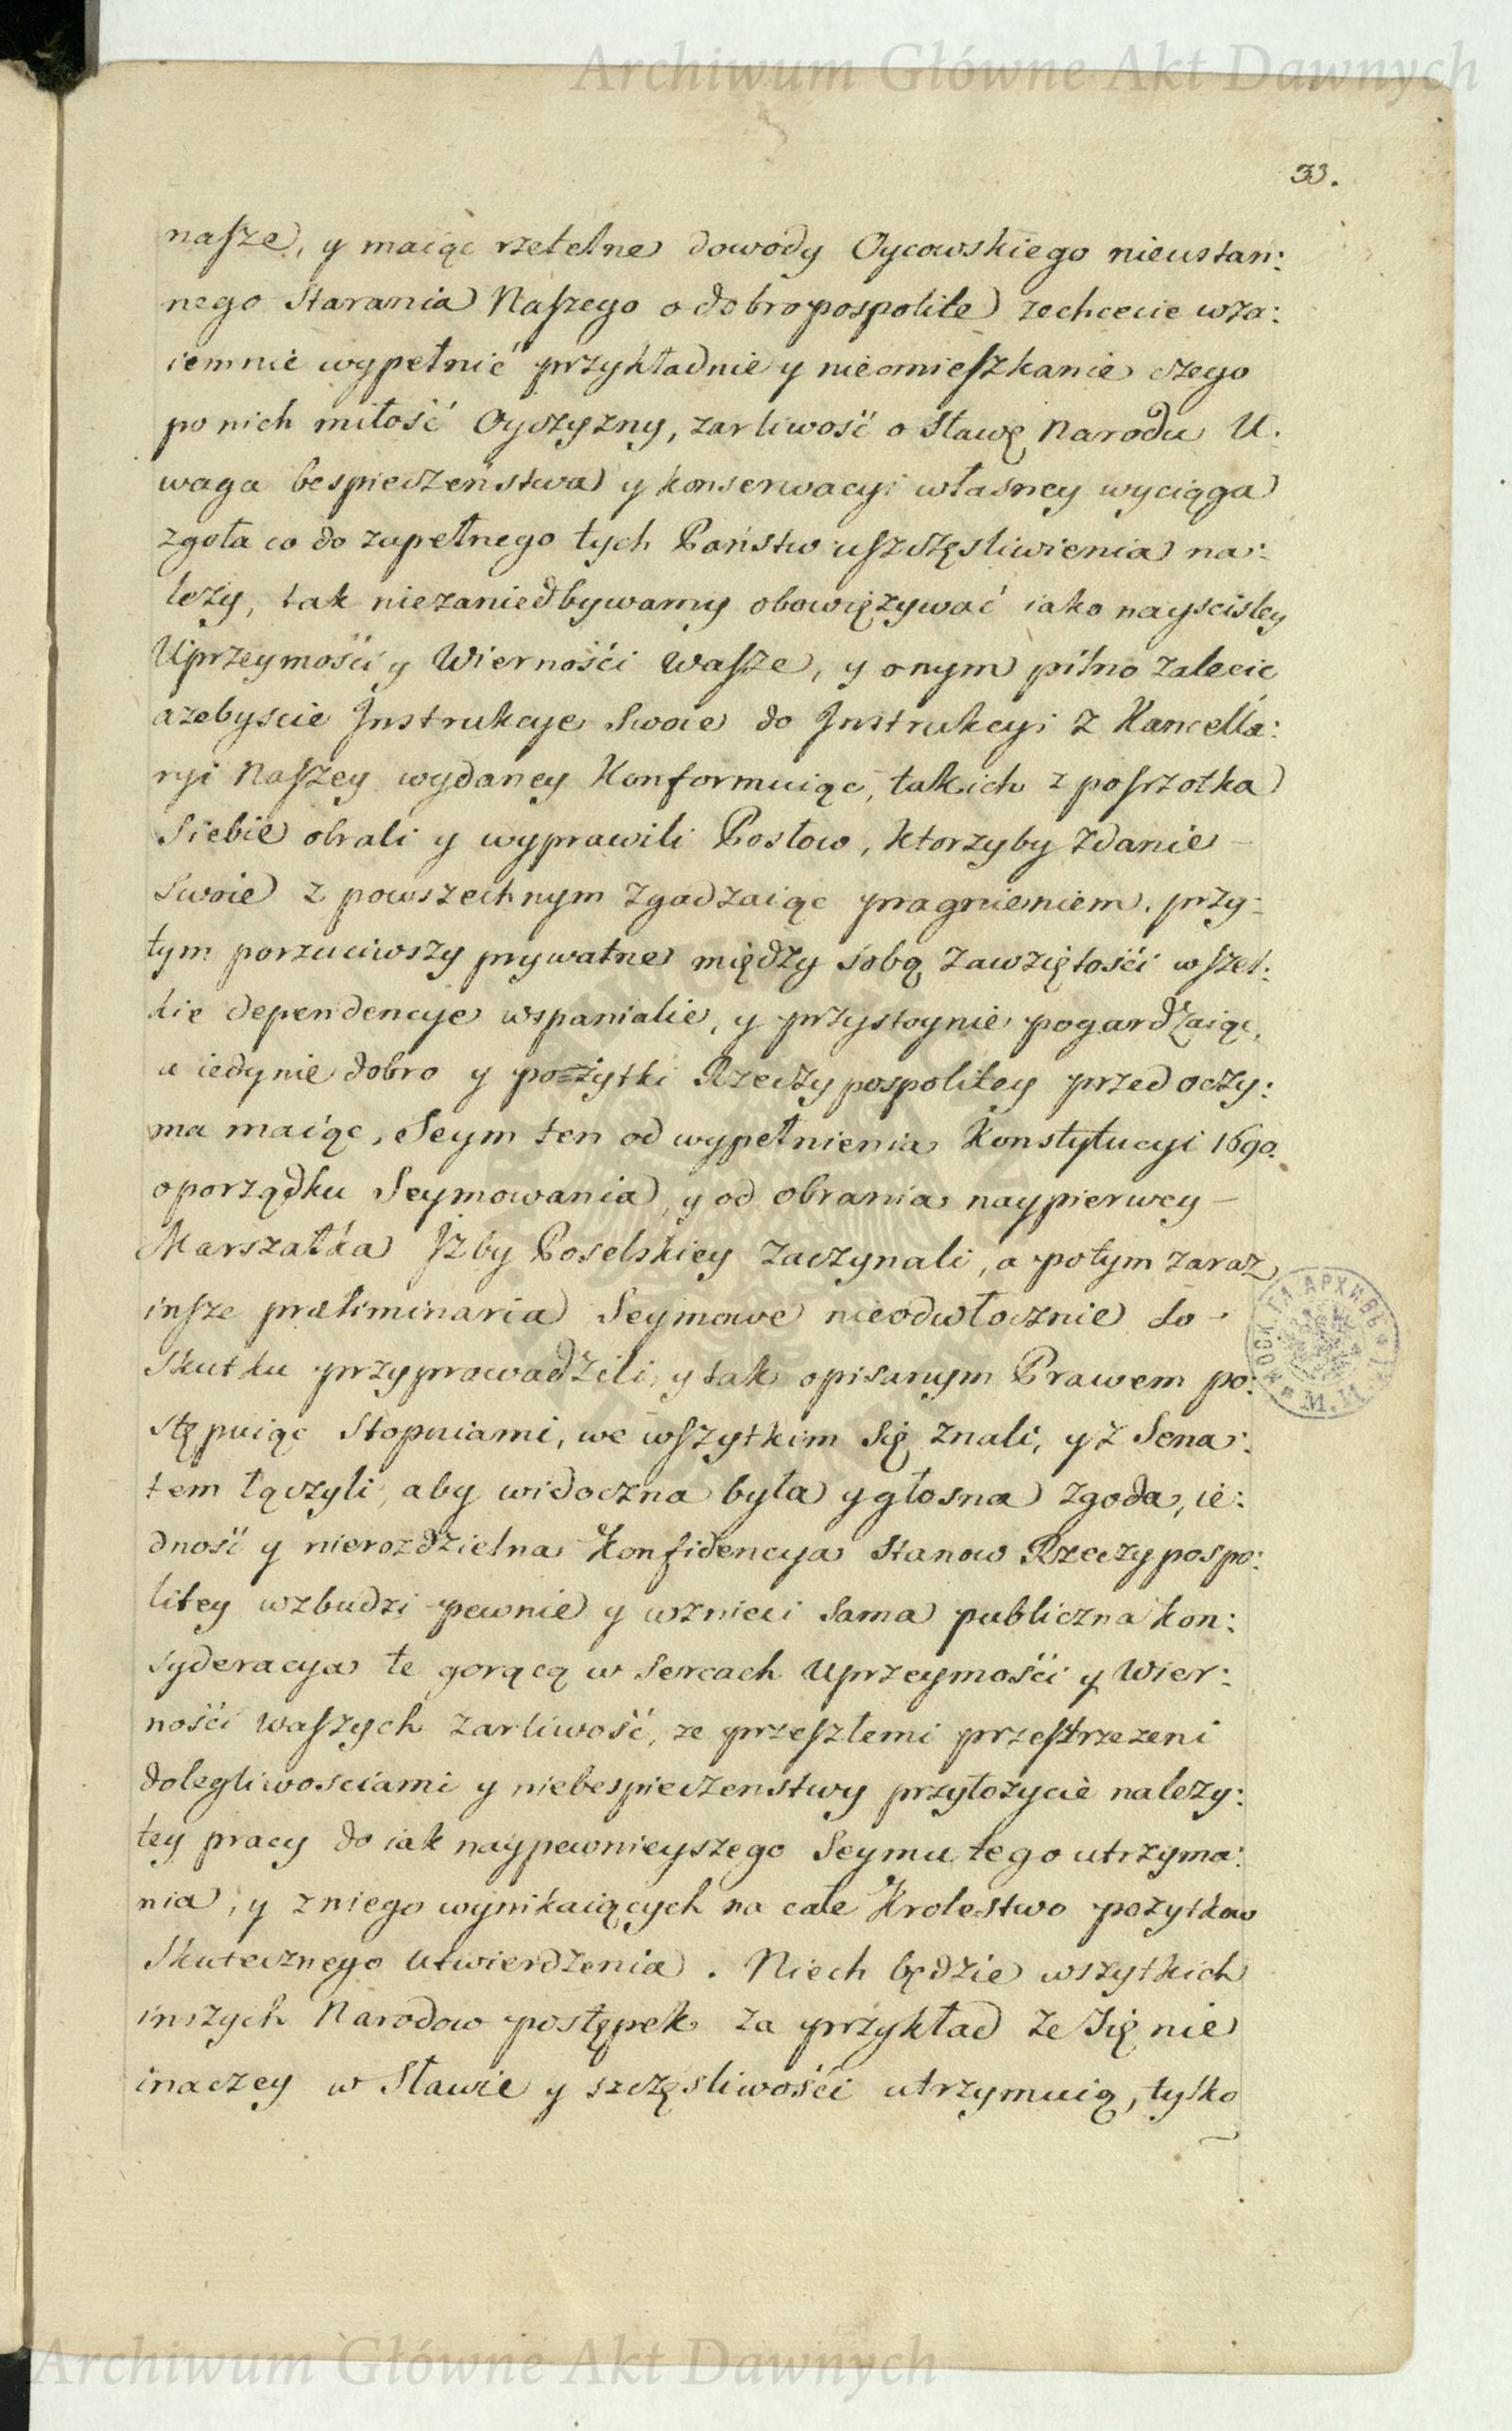 Archiwum Główne Akt Dawnych
33.
nasze, y maiąc rzetelne dowody Oycowskiego nieustan:
nego starania Naszego o dobro pospolite zechcecie wza:
iemnie wypełnić przykładnie y nieomieszkanie czego
po nich miłość Oyczyzny, zarliwość o Sławę Narodu U.
waga bespieczeństwa y konserwacyi własney wyciąga
zgoła co do zupełnego tych Państw uszczęsliwienia na:
leży, tak niezaniedbywamy obowięzywać iako nayscisley
Uprzeymości y Wierności Wasze, y onym pilno zalecić
azebyscie Instrukcye Swoie do Instrukcyi z Kancella:
ryi Naszey wydaney Konformuiąc, takich z posrzotka
Siebie obrali y wyprawili Posłow, ktorzyby zdanie
Swoie z powszechnym zgadzaiąc pragnieniem, przy:
tym porzuciwszy prywatne między sobą zawziętości wszel:
kie dependencye wspaniałie, y przystoynie pogardzaiąc,
a iedynie dobro y pożytki Rzeczypospolitey przed oczy:
ma maiąc, Seym ten od wypełnienia Konstytucyi 1690.
o porządku Seymowania, y od obrania naypierwey
Marszałka Jzby Poselskiey zaczynali, a potym zaraz
insze præliminaria Seymowe nieodwłocznie do
Skutku przyprowadzili, y tak opisanym Prawem po:
stępuiąc Stopniami, we wszytkim się znali, y z Sena:
tem łączyli, aby widoczna była y głosna zgoda, ie:
dność y nierozdzielna Konfidencya Stanow Rzeczypospo:
litey wzbudzi pewnie y wznieci Sama publiczna kon:
syderacya te gorącą w Sercach Uprzeymości y Wier:
ności waszych zarliwość, ze przeszłemi przestrzezeni
dolegliwosciami y niebespieczenstwy przyłożycie należy:
tey pracy do iak naypewnieyszego Seymu tego utrzyma:
nia, y z niego wynikaiących na całe Krolestwo pozytkow
Skutecznego utwierdzenia. Niech będzie wszytkich
inszych Narodow postępek za przykład że się nie
inaczey w Sławie y szczęsliwości utrzymuią, tylko
МОСК. ГЛ. АРХИВЪ
М.И.Д.
Archiwum Główne Akt Dawnych